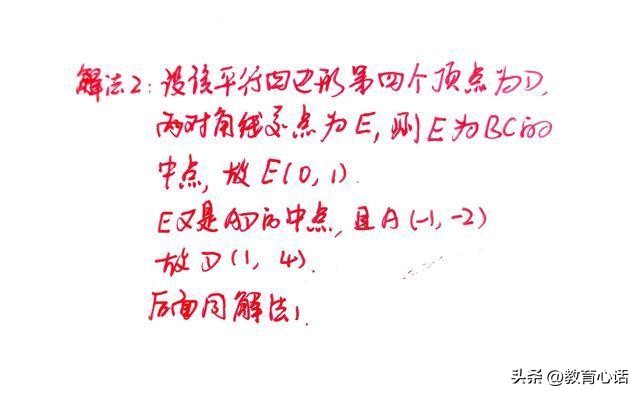 解法2：设该平行四边形第四个顶点为D,
两对角线交点为E,则E为BC的
中点,故E(0,1)
E又是AD的中点,且A(-1,-2)
故D(1,4).
后面同解法1.
头条 @教育心话